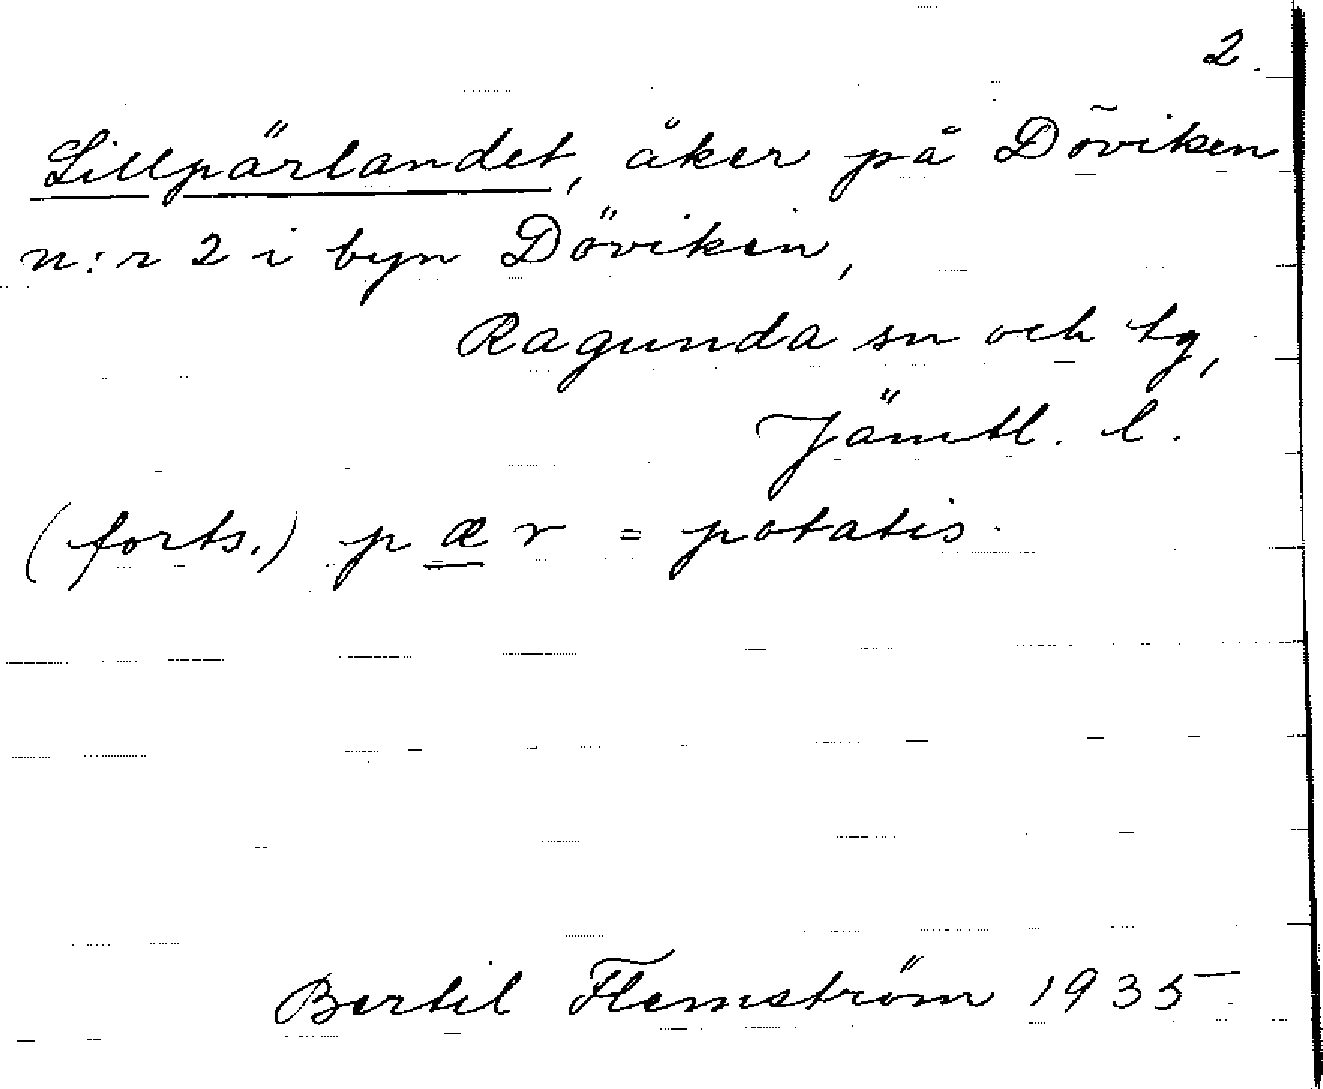 2.
Lillpärlandet, åker på Döviken
n:r 2 i byn Döviken,
Ragunda sn och tg,
Jämtl. l.
(forts.) pær = potatis.
Bertil Flemström 1935